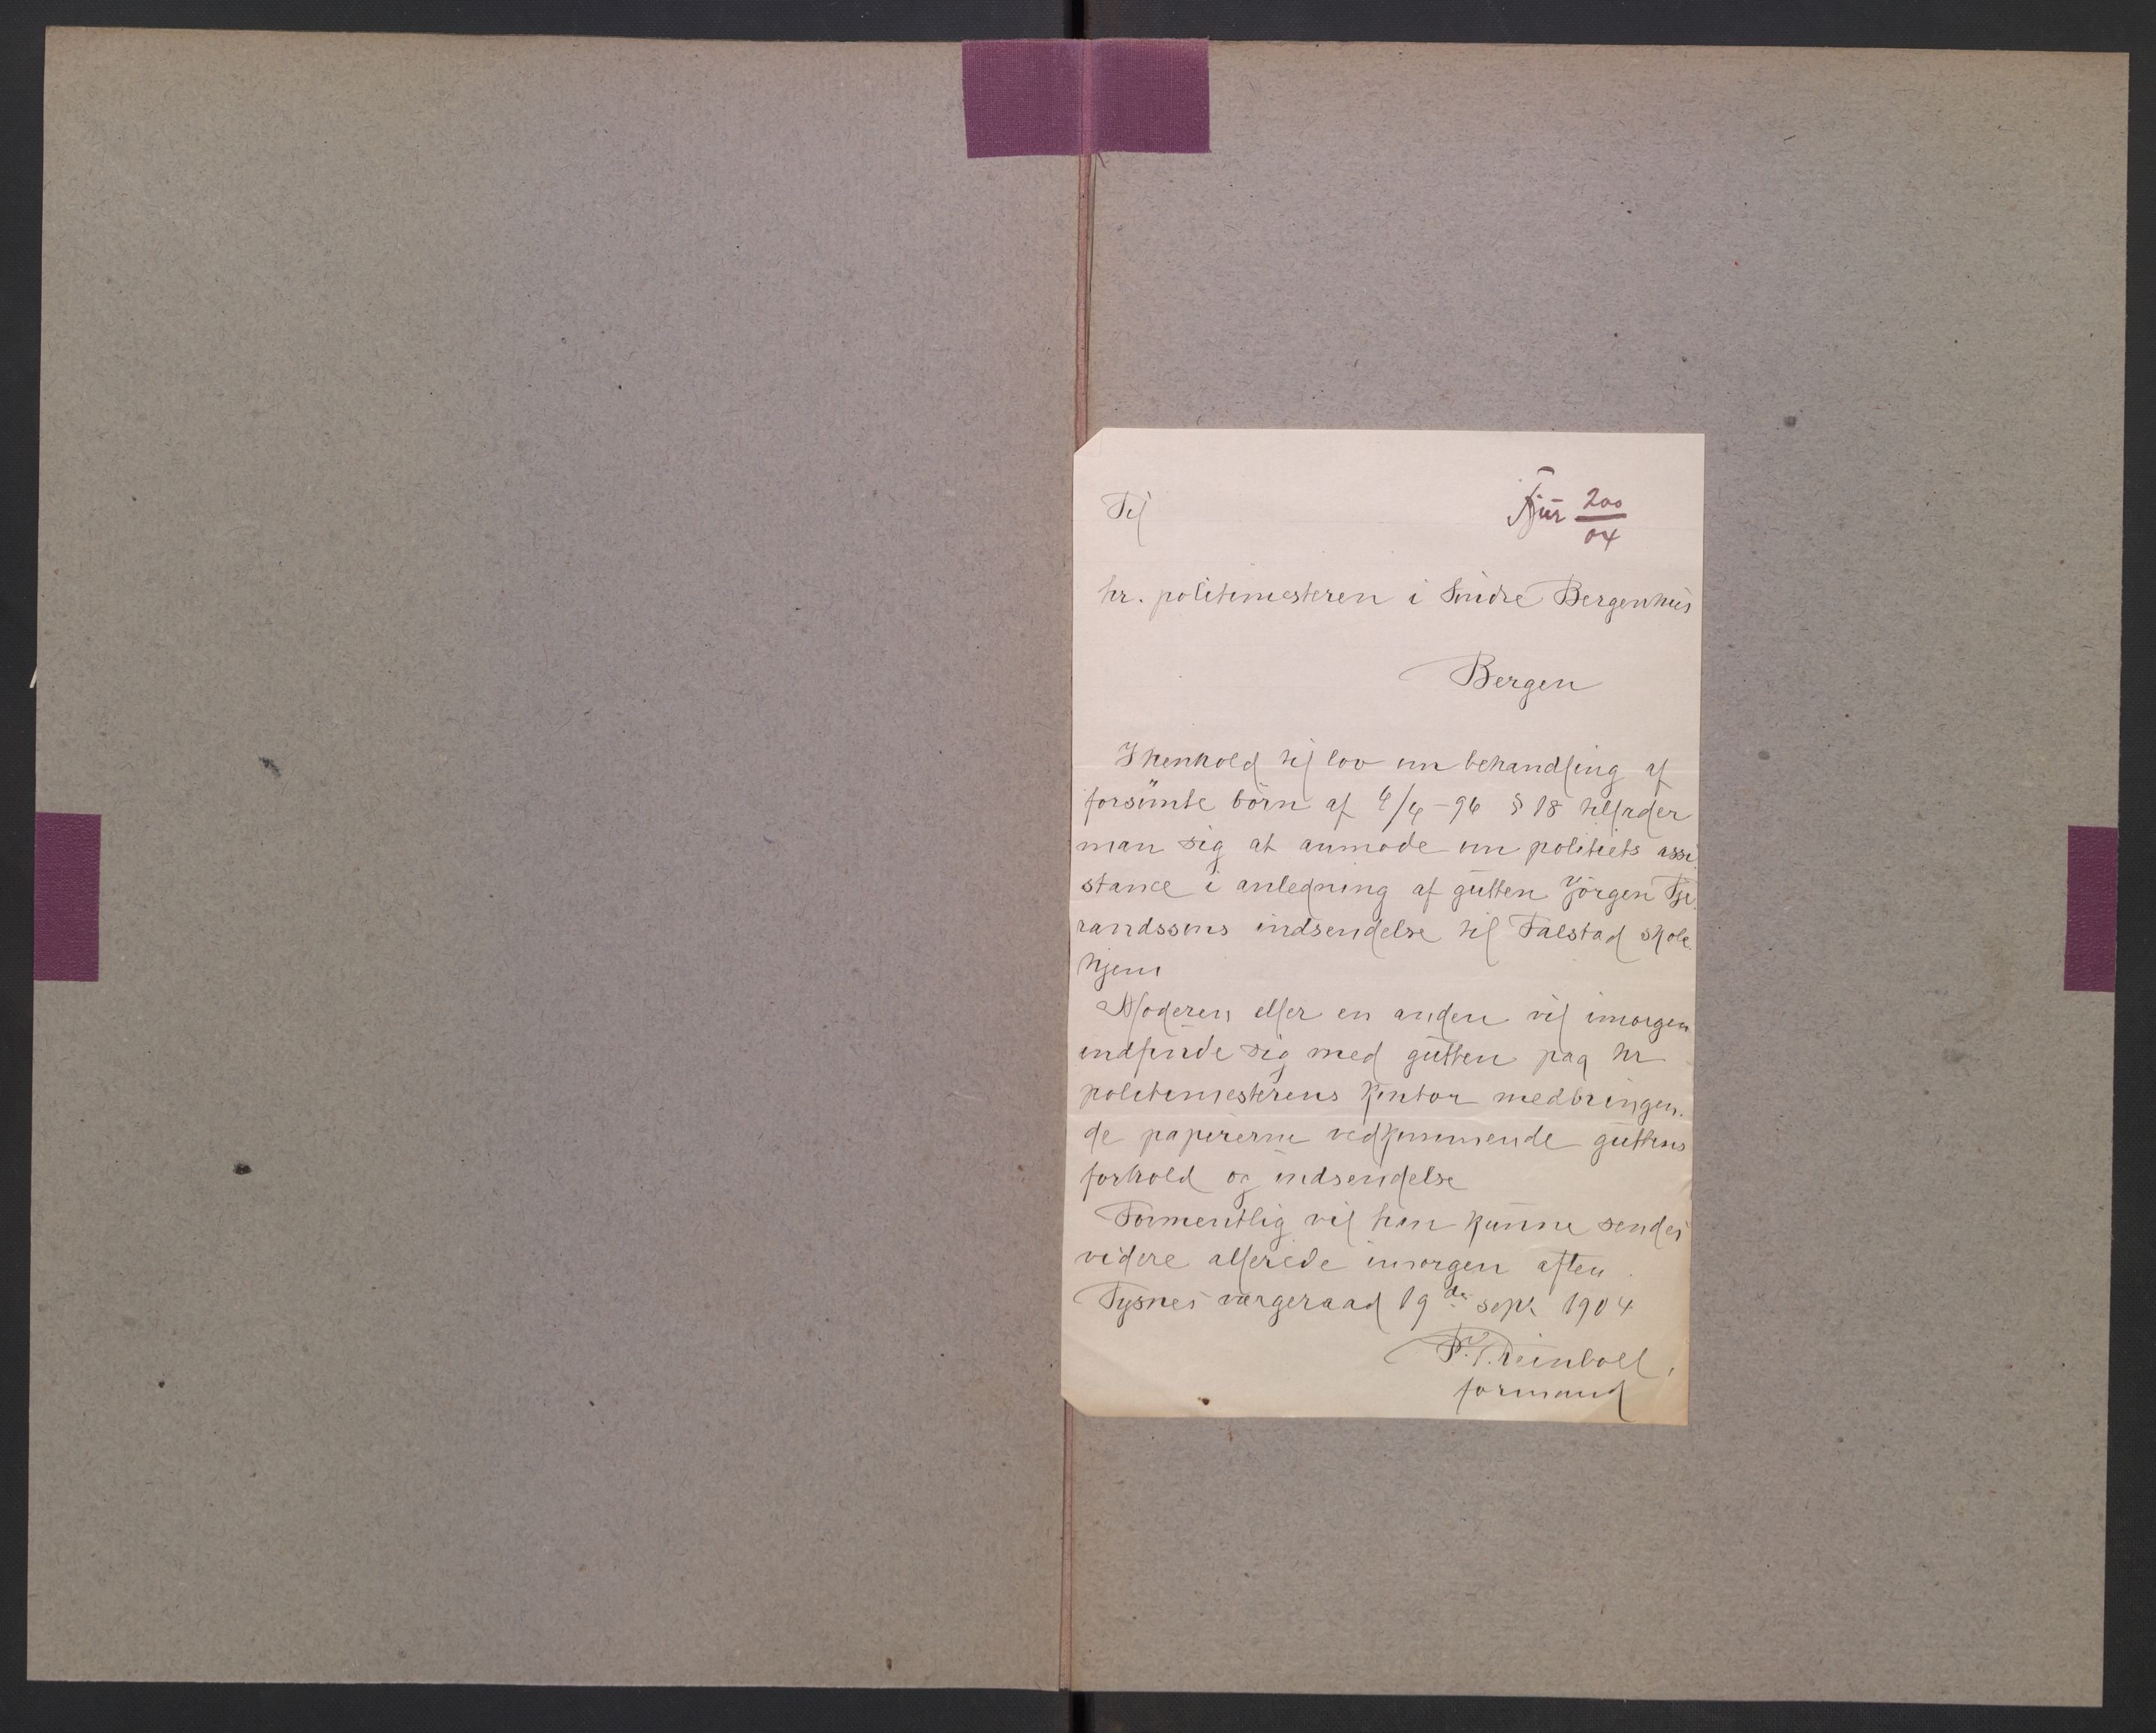 Til
Fjür 200/04
hr. politimesteren i Søndre Bergenhus
Bergen
I henhold til lov om behandling af
forsømte børn af 6/6-96 § 18 tillader
man sig at anmode om politiets assi-
stance i anledning af gutten Jörgen Tje-
randssøns indsendelse til Falstad skole-
hjem
Moderen eller en anden vil imorgen
indfinde sig med gutten paa hr
politimesterens kontor medbringen-
de papirerne vedkommende guttens
forhold og indsendelse
Formentlig vil han kunne sendes
videre allerede imorgen aften.
Tysnes vergeraad 19de sept 1904
formand